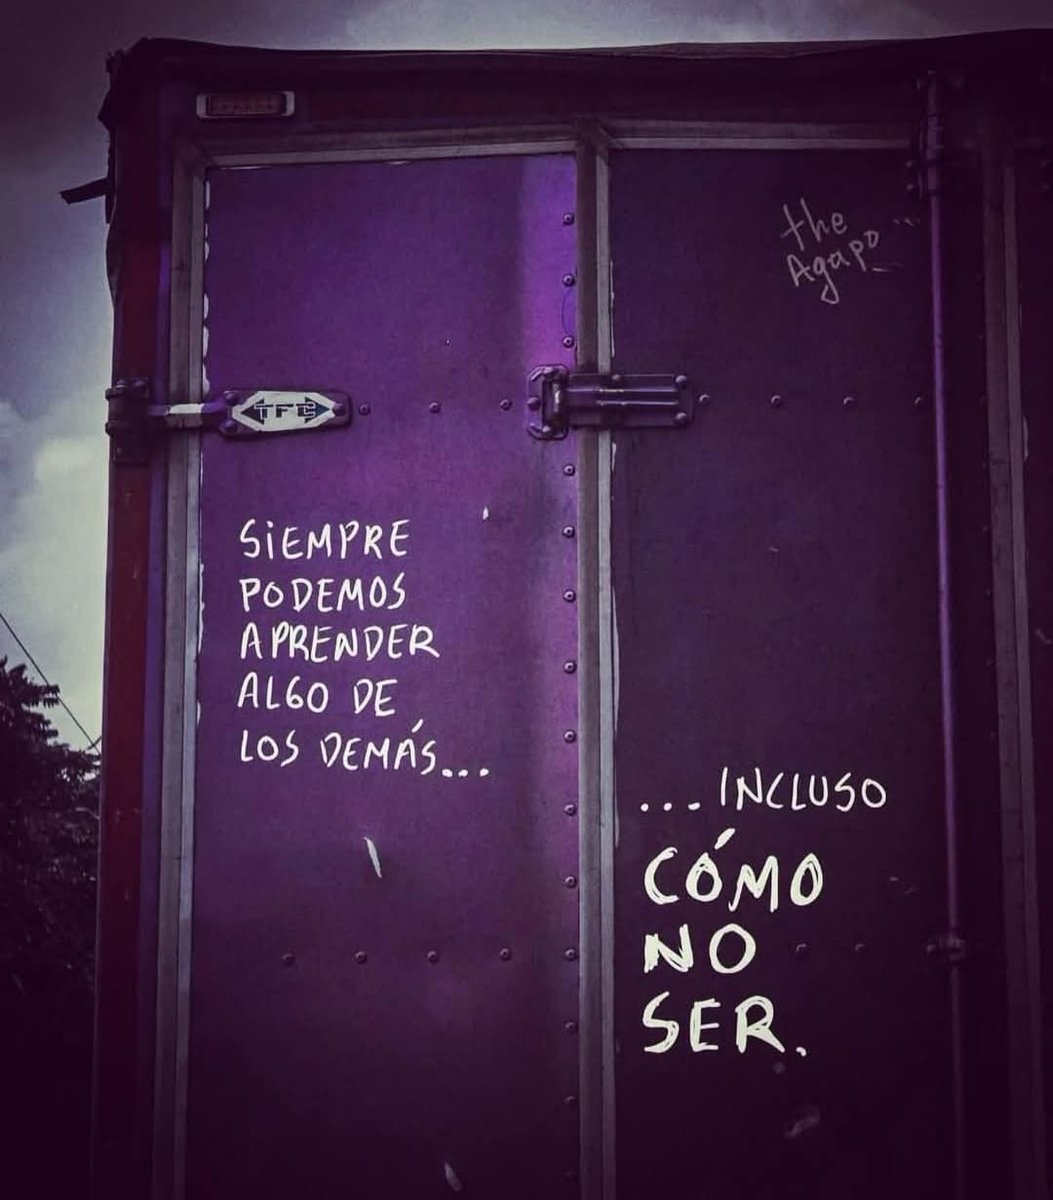 the
Agapo
TFC
SiEMPRE
PODEMOS
APRENDER
ALGO DE
LOS DEMÁS...
...INCLUSO
CÓMO
NO
SER.